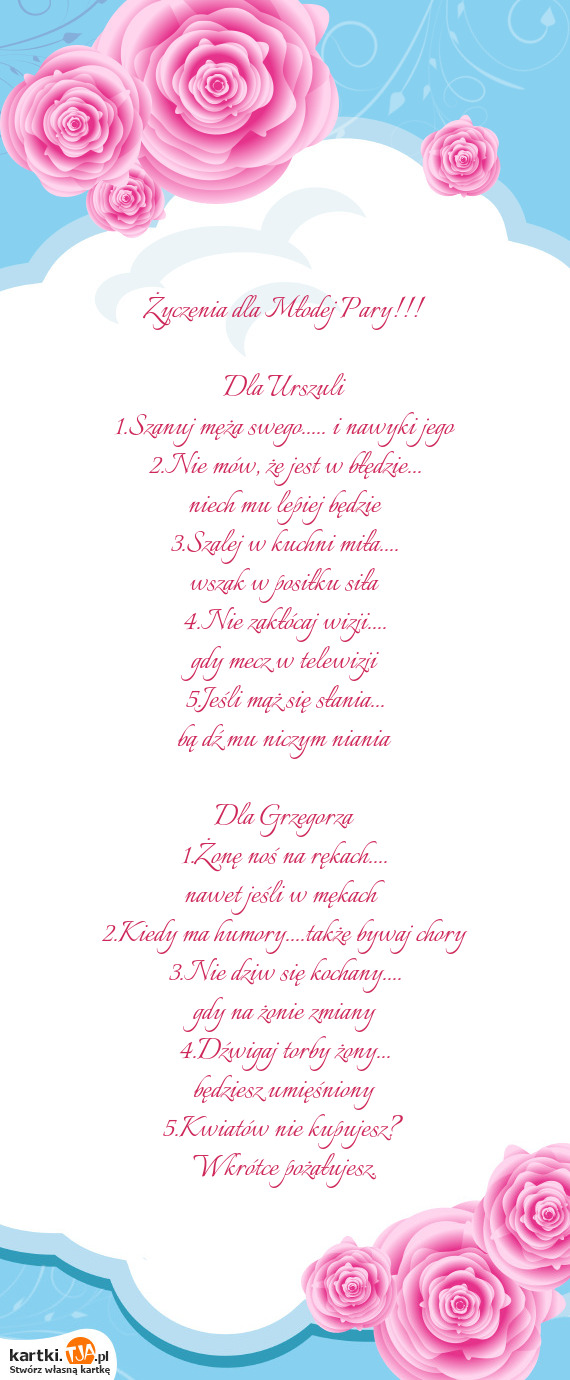 Życzenia dla Młodej Pary!!!
Dla Urszuli
1.Szanuj męża swego..... i nawyki jego
2.Nie mów, że jest w błędzie...
niech mu lepiej będzie
3.Szalej w kuchni miła....
wszak w posiłku siła
4.Nie zakłócaj wizji....
gdy mecz w telewizji
5.Jeśli mąż się słania...
bą dź mu niczym niania
Dla Grzegorza
1.Żonę noś na rękach....
nawet jeśli w mękach
2.Kiedy ma humory....także bywaj chory
3.Nie dziw się kochany....
gdy na żonie zmiany
4.Dźwigaj torby żony...
będziesz umięśniony
5.Kwiatów nie kupujesz?
Wkrótce pożałujesz.
kartki.TJA.pl
Stwórz własną kartkę